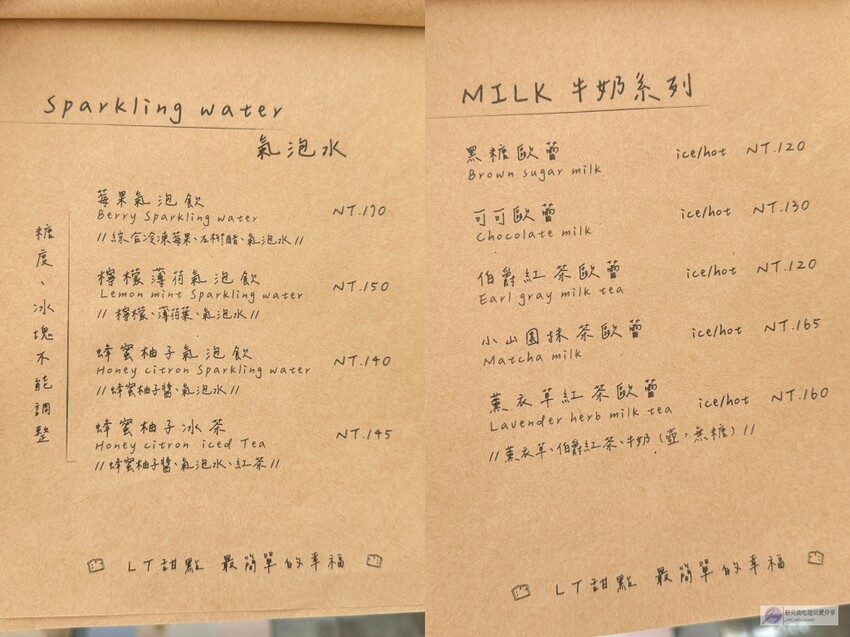 Sparkling water
氣泡水
糖度、冰塊不能調整
莓果氣泡飲
Berry Sparkling water NT.170
//綜合冷凍莓果、左柳醋、氣泡水//
檸檬薄荷氣泡飲
Lemon mint Sparkling water NT.150
//檸檬、薄荷葉、氣泡水//
蜂蜜柚子氣泡飲
Honey citron Sparkling water NT.140
//蜂蜜柚子醬、氣泡水//
蜂蜜柚子冰茶
Honey citron iced Tea NT.145
//蜂蜜柚子醬、氣泡水、紅茶//
LT甜點 最簡單的幸福
MILK 牛奶系列
黑糖歐蕾 ice/hot NT.120
Brown sugar milk
可可歐蕾 ice/hot NT.130
Chocolate milk
伯爵紅茶歐蕾 ice/hot NT.120
Earl gray milk tea
小山園抹茶歐蕾 ice/hot NT.165
Matcha milk
薰衣草紅茶歐蕾 ice/hot NT.160
Lavender herb milk tea
//薰衣草、伯爵紅茶、牛奶(壺,無糖)//
LT甜點 最簡單的幸福